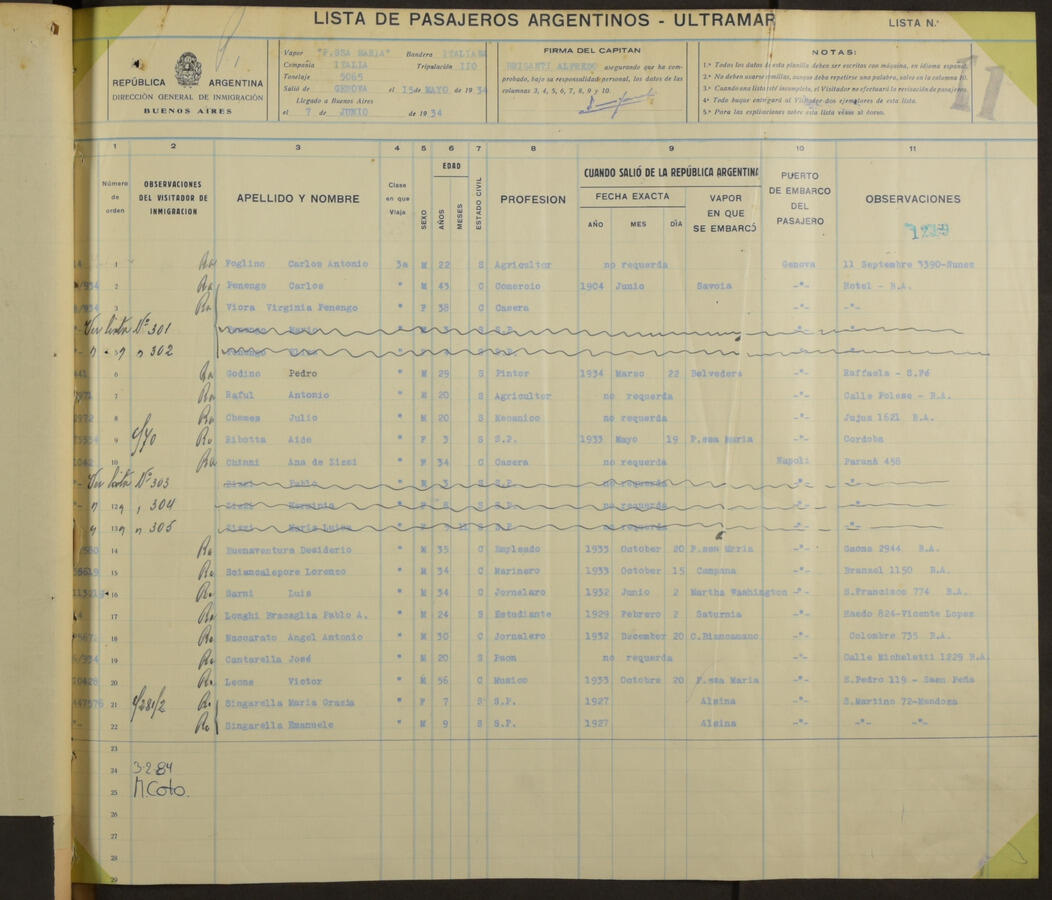 LISTA DE PASAJEROS ARGENTINOS - ULTRAMAR
LISTA N.°
11
REPÚBLICA ARGENTINA
DIRECCIÓN GENERAL DE INMIGRACIÓN
BUENOS AIRES
Vapor "P.SSA MARIA" Bandera ITALIANA
Compañía ITALIA Tripulación 110
Tonelaje 5065
Salió de GENOVA el 15 de MAYO de 1934
Llegado a Buenos Aires
el 7 de JUNIO de 1934
FIRMA DEL CAPITAN
BRIGANTI ALFREDO asegurando que ha com-
probado, bajo su responsabilidad personal, los datos de las
columnas 3, 4, 5, 6, 7, 8, 9 y 10.
NOTAS:
1.° Todos los datos de esta planilla deben ser escritos con máquina, en idioma español.
2.° No deben usarse comillas, aunque deba repetirse una palabra, salvo en la columna 10.
3.° Cuando una lista esté incompleta, el Visitador no efectuará la revisación de pasajeros.
4.° Todo buque entregará al Visitador dos ejemplares de esta lista.
5.° Para las explicaciones sobre esta lista véase al dorso.
1 2 3 4 5 6 7 8 9 10 11
Número de orden
OBSERVACIONES DEL VISITADOR DE INMIGRACION
APELLIDO Y NOMBRE
Clase en que Viaja
SEXO
EDAD
AÑOS
MESES
ESTADO CIVIL
PROFESION
CUANDO SALIÓ DE LA REPÚBLICA ARGENTINA
FECHA EXACTA
AÑO MES DÍA
VAPOR EN QUE SE EMBARCÓ
PUERTO DE EMBARCO DEL PASAJERO
OBSERVACIONES
1 Foglino Carlos Antonio 3a M 22 S Agricultor no requerda Genova 11 Septembre 3390-Nunez
2 Penengo Carlos " M 43 C Comercio 1904 Junio Savoia -"- Hotel - B.A.
3 Viora Virginia Penengo " F 38 C Casera -"- -"-
Ver lista N° 301
" " " 302
6 Godino Pedro " M 29 S Pintor 1934 Marzo 22 Belvedere -"- Raffaela - S.Fé
7 Raful Antonio " M 20 S Agricultor no requerda -"- Calle Polese - B.A.
8 Chemes Julio " M 20 S Mecanico no requerda -"- Jujus 1621 B.A.
9 c/70 Ribotta Aide " F 3 S S.P. 1933 Mayo 19 P.ssa Maria -"- Cordoba
10 Chinni Ana de Zizzi " F 34 C Casera no requerda Napoli Paraná 458
Ver lista N° 303
12 " " 304
13 " " 305
14 Buenaventura Desiderio " M 35 C Empleado 1933 October 20 P.ssa Maria -"- Gaona 2944 B.A.
15 Sciancalepore Lorenzo " M 34 C Marinero 1933 October 15 Campana -"- Branzel 1150 B.A.
16 Sarni Luis " M 34 C Jornelaro 1932 Junio 2 Martha Washington -"- S.Francisco 774 B.A.
17 Longhi Bracaglia Pablo A. " M 24 S Estudiante 1929 Febrero 2 Saturnia -"- Haedo 824-Vicente Lopez
18 Naccarato Angel Antonio " M 30 C Jornalero 1932 December 20 C.Biancamano -"- Colombre 735 B.A.
19 Cantarella José " M 20 S Peon no requerda -"- Calle Micheletti 1229 B.A.
20 Leone Victor " M 56 C Musico 1933 Octobre 20 P.ssa Maria -"- S.Pedro 119 - Saen Peña
21 Singarella Maria Grazia " F 7 S S.P. 1927 Alsina -"- S.Martino 72-Mendoza
22 Singarella Emanuele " M 9 S S.P. 1927 Alsina -"- -"- -"-
23
24 3-2-84
25 M.Coto.
26
27
28
29